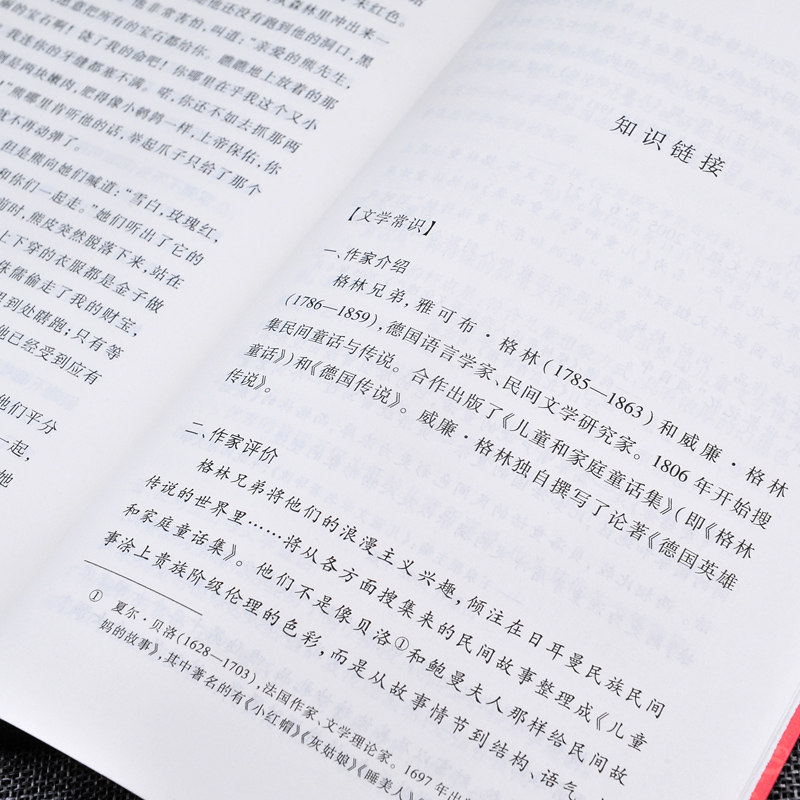 朱红色。
森林里冲出来一
他还没有跑到他的洞口，黑
他非常害怕，叫道：“亲爱的熊先生，
愿意把所有的宝石都给你。瞧瞧地上放着的那
的宝石啊！饶了我的命吧！你哪里在乎我这个又小
我连你的牙缝都塞不满。喏，你还不如去抓那两
倒是两块嫩肉，肥得像小鹌鹑一样，上帝保佑，你
！”熊哪里肯听他的话，举起爪子只给了那个
就不再动弹了。
但是熊向她们喊道：“雪白，玫瑰红，
和你们一起走。”她们听出了它的
前时，熊皮突然脱落下来，站在
上下穿的衣服都是金子做
侏儒偷走了我的财宝，
里到处瞎跑；只有等
他已经受到应有
他们平分
一起，
她
知识链接
【文学常识】
一、作家介绍
格林兄弟，雅可布·格林（1785—1863）和威廉·格林
（1786—1859），德国语言学家、民间文学研究家。1806年开始搜
集民间童话与传说。合作出版了《儿童和家庭童话集》（即《格林
童话》）和《德国传说》。威廉·格林独自撰写了论著《德国英雄
传说》。
二、作家评价
格林兄弟将他们的浪漫主义兴趣，倾注在日耳曼民族民间
传说的世界里……将从各方面搜集来的民间故事整理成《儿童
和家庭童话集》。他们不是像贝洛①和鲍曼夫人那样给民间故
事涂上贵族阶级伦理的色彩，而是从故事情节到结构、语气、
① 夏尔·贝洛（1628—1703），法国作家、文学理论家。1697年出
妈的故事》，其中著名的有《小红帽》《灰姑娘》《睡美人》